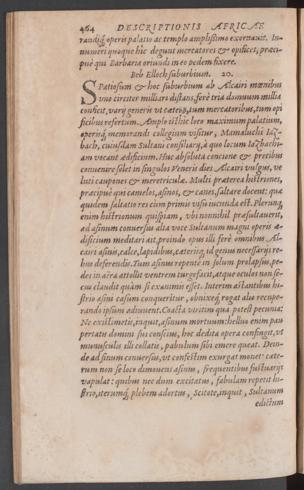 464 DESCRIPTIONIS AFRICAE
randiq́ operis palatio ac templo amplissimo exornauit. In
numeri quoque hîc degunt mercatores & opifices, præci
puè qui Barbaria oriundi in eo pedem fixere.
Beb Elloch suburbium. 20.
SPatiosum & hoc suburbium ab Alcairi mœnibus
vno circiter milliari distans, ferè tria domuum millia
conficit, varij generis vt cateris, tum mercatoribus, tum opi
ficibus refertum. Amplo isthîc loco maximum palatium,
operisq́ memorandi collegium visitur, Mamaluchi Iaz-
bach, cuiusdam Sultani consiliarij, à quo locum Iazbachi-
am vocant ædificium. Huc absoluta concione & precibus
conuenire solet in singulos Veneris dies Alcairi vulgus, ve
luti caupones & meretriculæ. Multi præterea histriones,
præcipuè qui camelos, asinos, & canes, saltare docent: quæ
quidem saltatio res cum primis visu iucunda est. Plerunq́
enim histrionum quispiam, vbi nonnihil præsaltauerit,
ad asinum conuersus alta voce Sultanum magni operis æ-
dificium meditari ait, proinde opus illi ferè omnibus Al-
cairi asinis, calce, lapidibus, caterisq́ id genus necessarijs re-
bus deferendis. Tum asinus repente in solum prolapsus, pe-
des in aëra attollit ventrem turgefacit, atque oculos non se-
cus claudit quàm si exanimis esset. Interim astantibus hi-
strio asini casum conqueritur, obnixeq́ rogat alia recupe-
rando ipsum adiuuent. Coacta viritim qua potest pecunia;
Ne existimetis, inquit, asinum mortuum: helluo enim pau
pertatis domini sui conscius, hoc dedita opera confingit, vt
munusculis illi collatis, pabulum sibi emere queat. Dein-
de ad sinum conuersus, vt confestim exurgat monet: cate-
rum non se loco dimouens asinus, frequentibus fustuarijs
vapulat: quibus nec dum excitatus, fabulam repetit hi-
strio, iterumq́ plebem adortus, Scitote, inquit, Sultanum
edictum